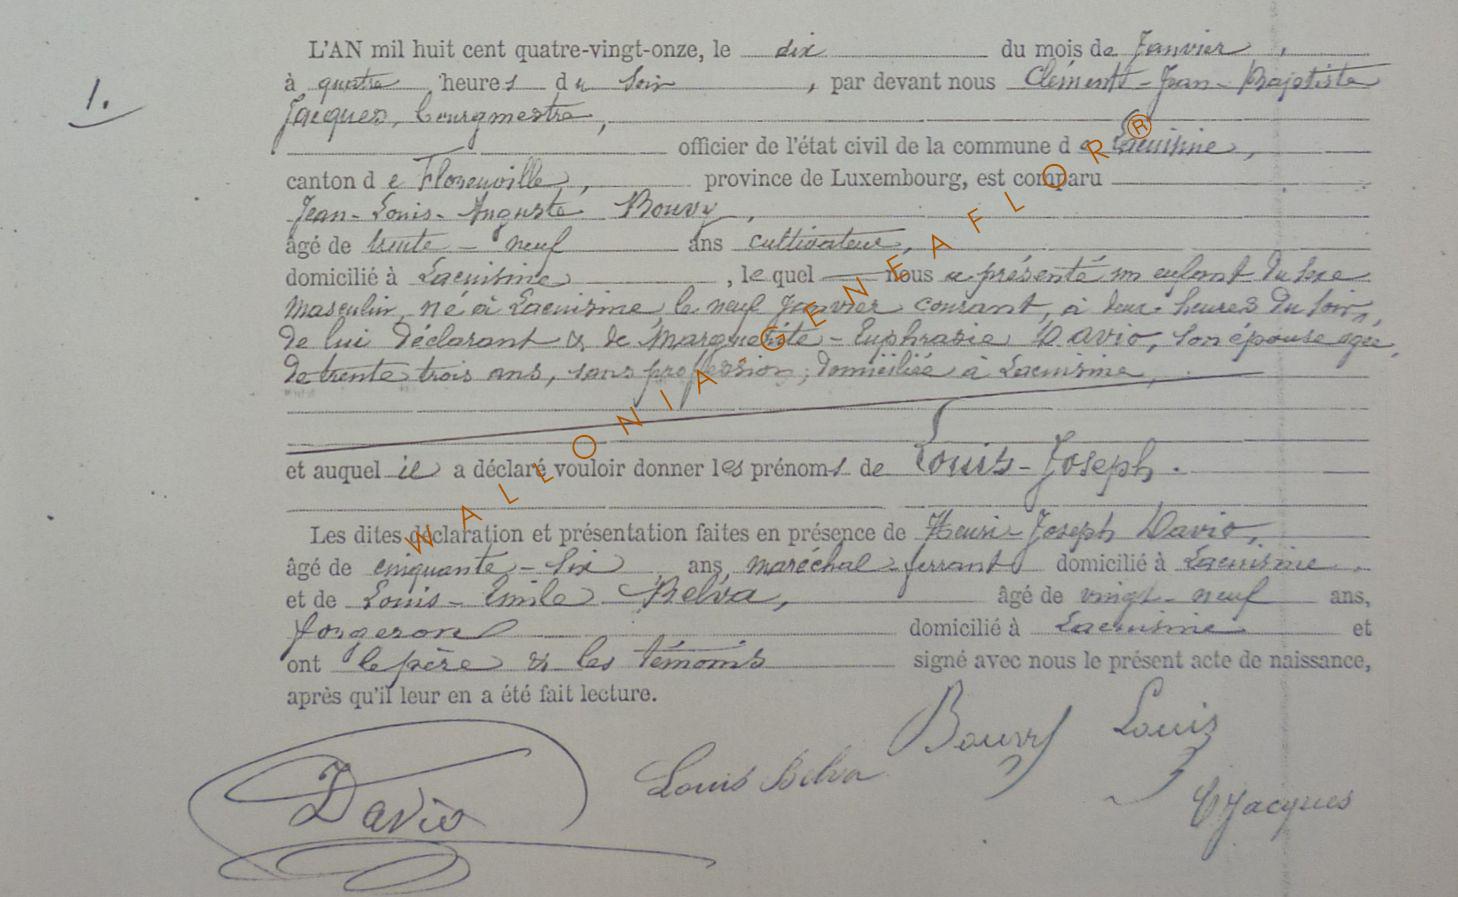 L'AN mil huit cent quatre-vingt-onze, le dix du mois de Janvier,
1.
à quatre heures du soir, par devant nous Clément-Jean-Baptiste
Jacques, bourgmestre,
officier de l'état civil de la commune de Lacuisine,
canton de Florenville, province de Luxembourg, est comparu
Jean-Louis-Auguste Bouvy,
âgé de trente-neuf ans cultivateur,
domicilié à Lacuisine, lequel nous a présenté un enfant du sexe
masculin, né à Lacuisine, le neuf janvier courant, à deux heures du soir,
de lui déclarant & de Marguerite-Euphrasie Davio, son épouse agée
de trente trois ans, sans profession, domiciliée à Lacuisine,
et auquel il a déclaré vouloir donner les prénoms de Louis-Joseph.
Les dites déclaration et présentation faites en présence de Henri-Joseph Davio,
âgé de cinquante-six ans, maréchal-ferrant domicilié à Lacuisine
et de Louis-Emile Belva, âgé de vingt-neuf ans,
forgeron domicilié à Lacuisine et
ont le père & les témoins signé avec nous le présent acte de naissance,
après qu'il leur en a été fait lecture.
Davio Louis Belva Bouvy Louis
CJacques
WALLONIA-GENEAFLOR®